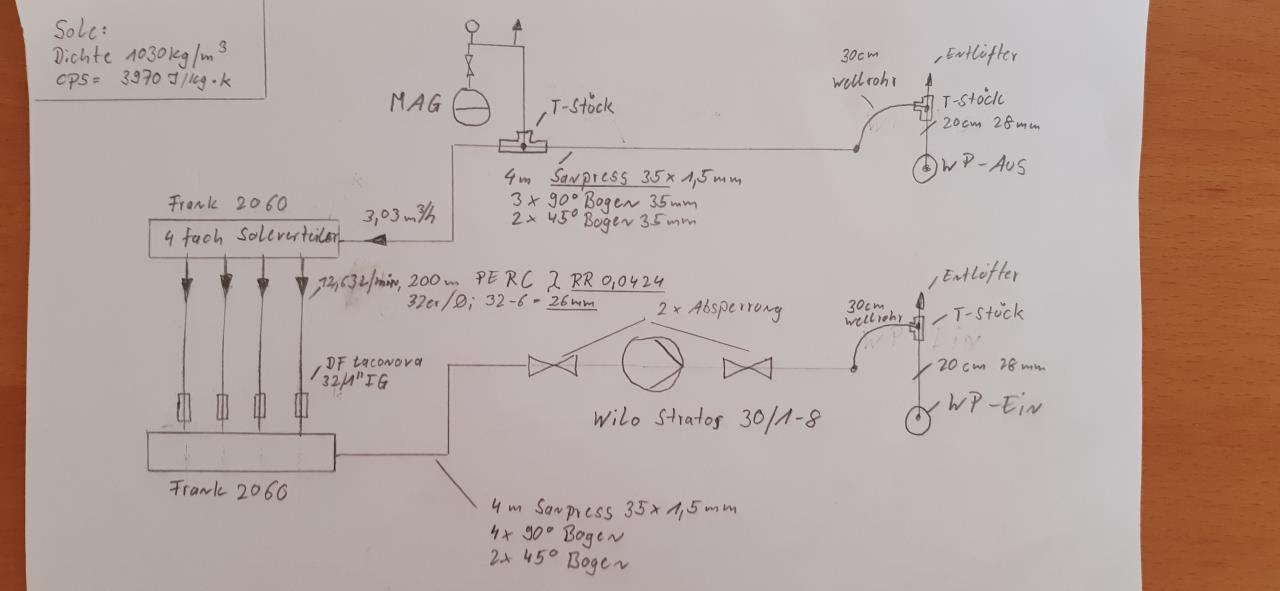 Sole:
Dichte 1030kg/m³
CPS= 3970 J/kg·k
MAG
T-Stück
30cm
wellrohr
Entlüfter
T-Stück
20cm 28mm
WP-AUS
4m Sanpress 35x1,5mm
3x 90° Bogen 35mm
2x 45° Bogen 35mm
Frank 2060
3,03m³/h
4 fach Soleverteiler
12,63l/min, 200m PERC λ RR 0,0424
32er/Ø; 32-6 = 26mm
2x Absperrung
30cm
wellrohr
Entlüfter
T-Stück
20cm 28mm
WP-EiN
DF taconova
32/1" IG
Wilo Stratos 30/1-8
Frank 2060
4m Sanpress 35x1,5mm
4x 90° Bogen
2x 45° Bogen